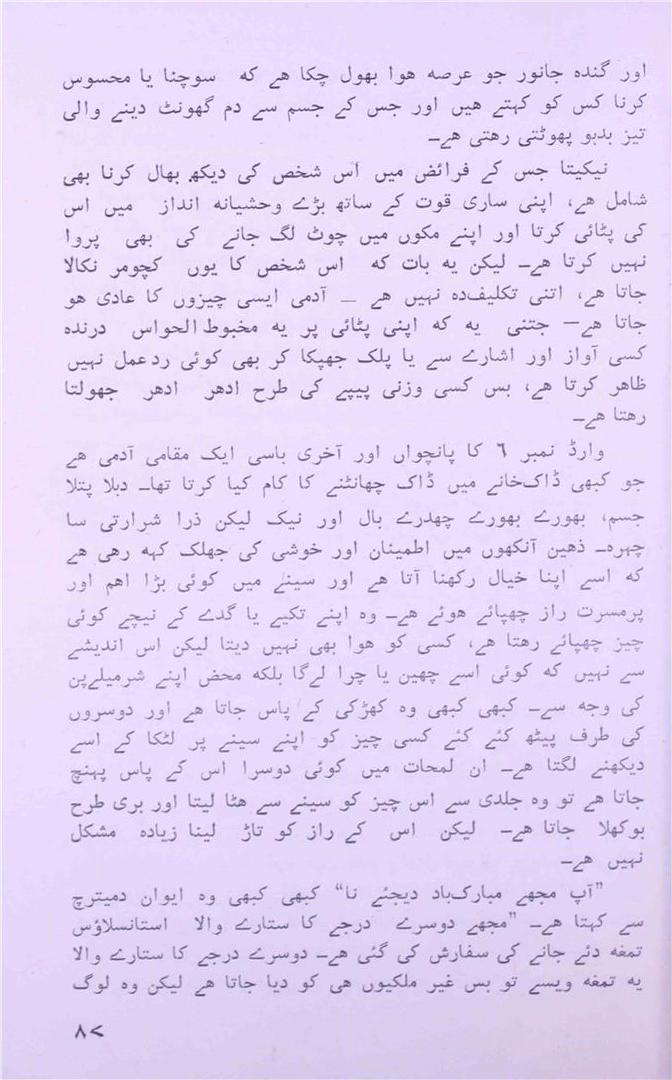 اور گندہ جانور جو عرصہ ھوا بھول چکا ھے کہ سوچنا یا محسوس
کرنا کس کو کہتے ھیں اور جس کے جسم سے دم گھونٹ دینے والی
تیز بدبو پھوٹتی رھتی ھے۔
نیکیتا جس کے فرائض میں اس شخص کی دیکھ بھال کرنا بھی
شامل ھے، اپنی ساری قوت کے ساتھ بڑے وحشیانہ انداز میں اس
کی پٹائی کرتا اور اپنے مکوں میں چوٹ لگ جانے کی بھی پروا
نہیں کرتا ھے۔ لیکن یہ بات کہ اس شخص کا یوں کچومر نکالا
جاتا ھے، اتنی تکلیف‌دہ نہیں ھے — آدمی ایسی چیزوں کا عادی ھو
جاتا ھے— جتنی یہ کہ اپنی پٹائی پر یہ مخبوط الحواس درندہ
کسی آواز اور اشارے سے یا پلک جھپکا کر بھی کوئی ردعمل نہیں
ظاھر کرتا ھے، بس کسی وزنی پیپے کی طرح ادھر ادھر جھولتا
رھتا ھے۔
وارڈ نمبر ٦ کا پانچواں اور آخری باسی ایک مقامی آدمی ھے
جو کبھی ڈاک‌خانے میں ڈاک چھانٹنے کا کام کیا کرتا تھا۔ دبلا پتلا
جسم، بھورے بھورے چھدرے بال اور نیک لیکن ذرا شرارتی سا
چہرہ۔ ذھین آنکھوں میں اطمینان اور خوشی کی جھلک کہہ رھی ھے
کہ اسے اپنا خیال رکھنا آتا ھے اور سینے میں کوئی بڑا اھم اور
پرمسرت راز چھپائے ھوئے ھے۔ وہ اپنے تکیے یا گدے کے نیچے کوئی
چیز چھپائے رھتا ھے، کسی کو ھوا بھی نہیں دیتا لیکن اس اندیشے
سے نہیں کہ کوئی اسے چھین یا چرا لے‌گا بلکہ محض اپنے شرمیلے‌پن
کی وجہ سے۔ کبھی کبھی وہ کھڑکی کے پاس جاتا ھے اور دوسروں
کی طرف پیٹھ کئے کئے کسی چیز کو اپنے سینے پر لٹکا کے اسے
دیکھنے لگتا ھے۔ ان لمحات میں کوئی دوسرا اس کے پاس پہنچ
جاتا ھے تو وہ جلدی سے اس چیز کو سینے سے ھٹا لیتا اور بری طرح
بوکھلا جاتا ھے۔ لیکن اس کے راز کو تاڑ لینا زیادہ مشکل
نہیں ھے۔
”آپ مجھے مبارک‌باد دیجئے نا“ کبھی کبھی وہ ایوان دمیترچ
سے کہتا ھے۔ ”مجھے دوسرے درجے کا ستارے والا استانسلاؤس
تمغہ دئے جانے کی سفارش کی گئی ھے۔ دوسرے درجے کا ستارے والا
یہ تمغہ ویسے تو بس غیر ملکیوں ھی کو دیا جاتا ھے لیکن وہ لوگ
۸۷